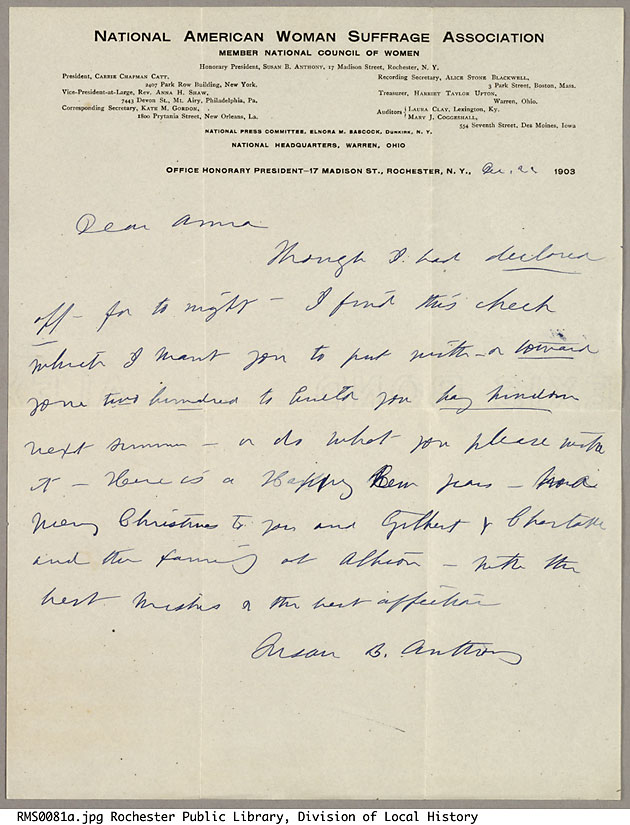 NATIONAL AMERICAN WOMAN SUFFRAGE ASSOCIATION
MEMBER NATIONAL COUNCIL OF WOMEN
Honorary President, SUSAN B. ANTHONY, 17 Madison Street, Rochester, N. Y.
President, CARRIE CHAPMAN CATT,
2407 Park Row Building, New York.
Vice-President-at-Large, REV. ANNA H. SHAW,
7443 Devon St., Mt. Airy, Philadelphia, Pa.
Corresponding Secretary, KATE M. GORDON,
1800 Prytania Street, New Orleans, La.
Recording Secretary, ALICE STONE BLACKWELL,
3 Park Street, Boston, Mass.
Treasurer, HARRIET TAYLOR UPTON,
Warren, Ohio.
Auditors { LAURA CLAY, Lexington, Ky.
MARY J. COGGESHALL,
554 Seventh Street, Des Moines, Iowa
NATIONAL PRESS COMMITTEE, ELNORA M. BABCOCK, DUNKIRK, N. Y.
NATIONAL HEADQUARTERS, WARREN, OHIO
OFFICE HONORARY PRESIDENT—17 MADISON ST., ROCHESTER, N. Y., Dec. 22 1903
Dear Anna
Though I had declared
off - for to night - I find this check
which I want you to put with - or toward
your two hundred to you bay window
next summer - or do what you please with
it - Here is a Happy New years - and
merry Christmas to you and Gilbert & Charlotte
and the family at Albion - with the
best wishes & the best affection
Susan B. Anthony
RMS0081a.jpg Rochester Public Library, Division of Local History